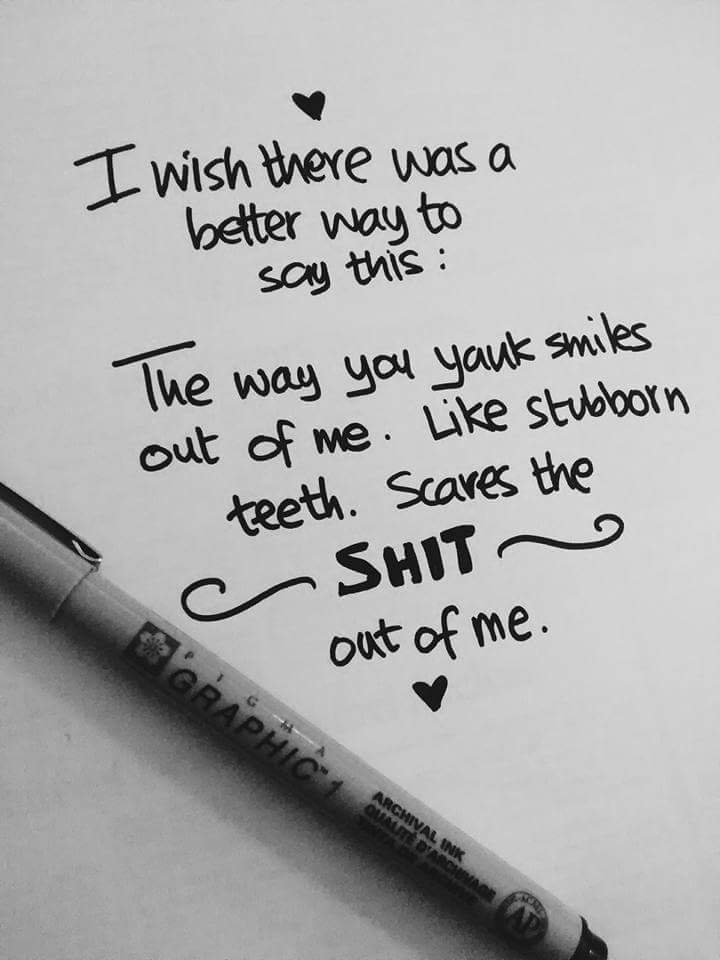 I wish there was a
better way to
say this:
The way you yank smiles
out of me. Like stubborn
teeth. Scares the
SHIT
out of me.
PIGMA
GRAPHIC™ 1
ARCHIVAL INK
QUALITÉ D'ARCHIVAGE
AP